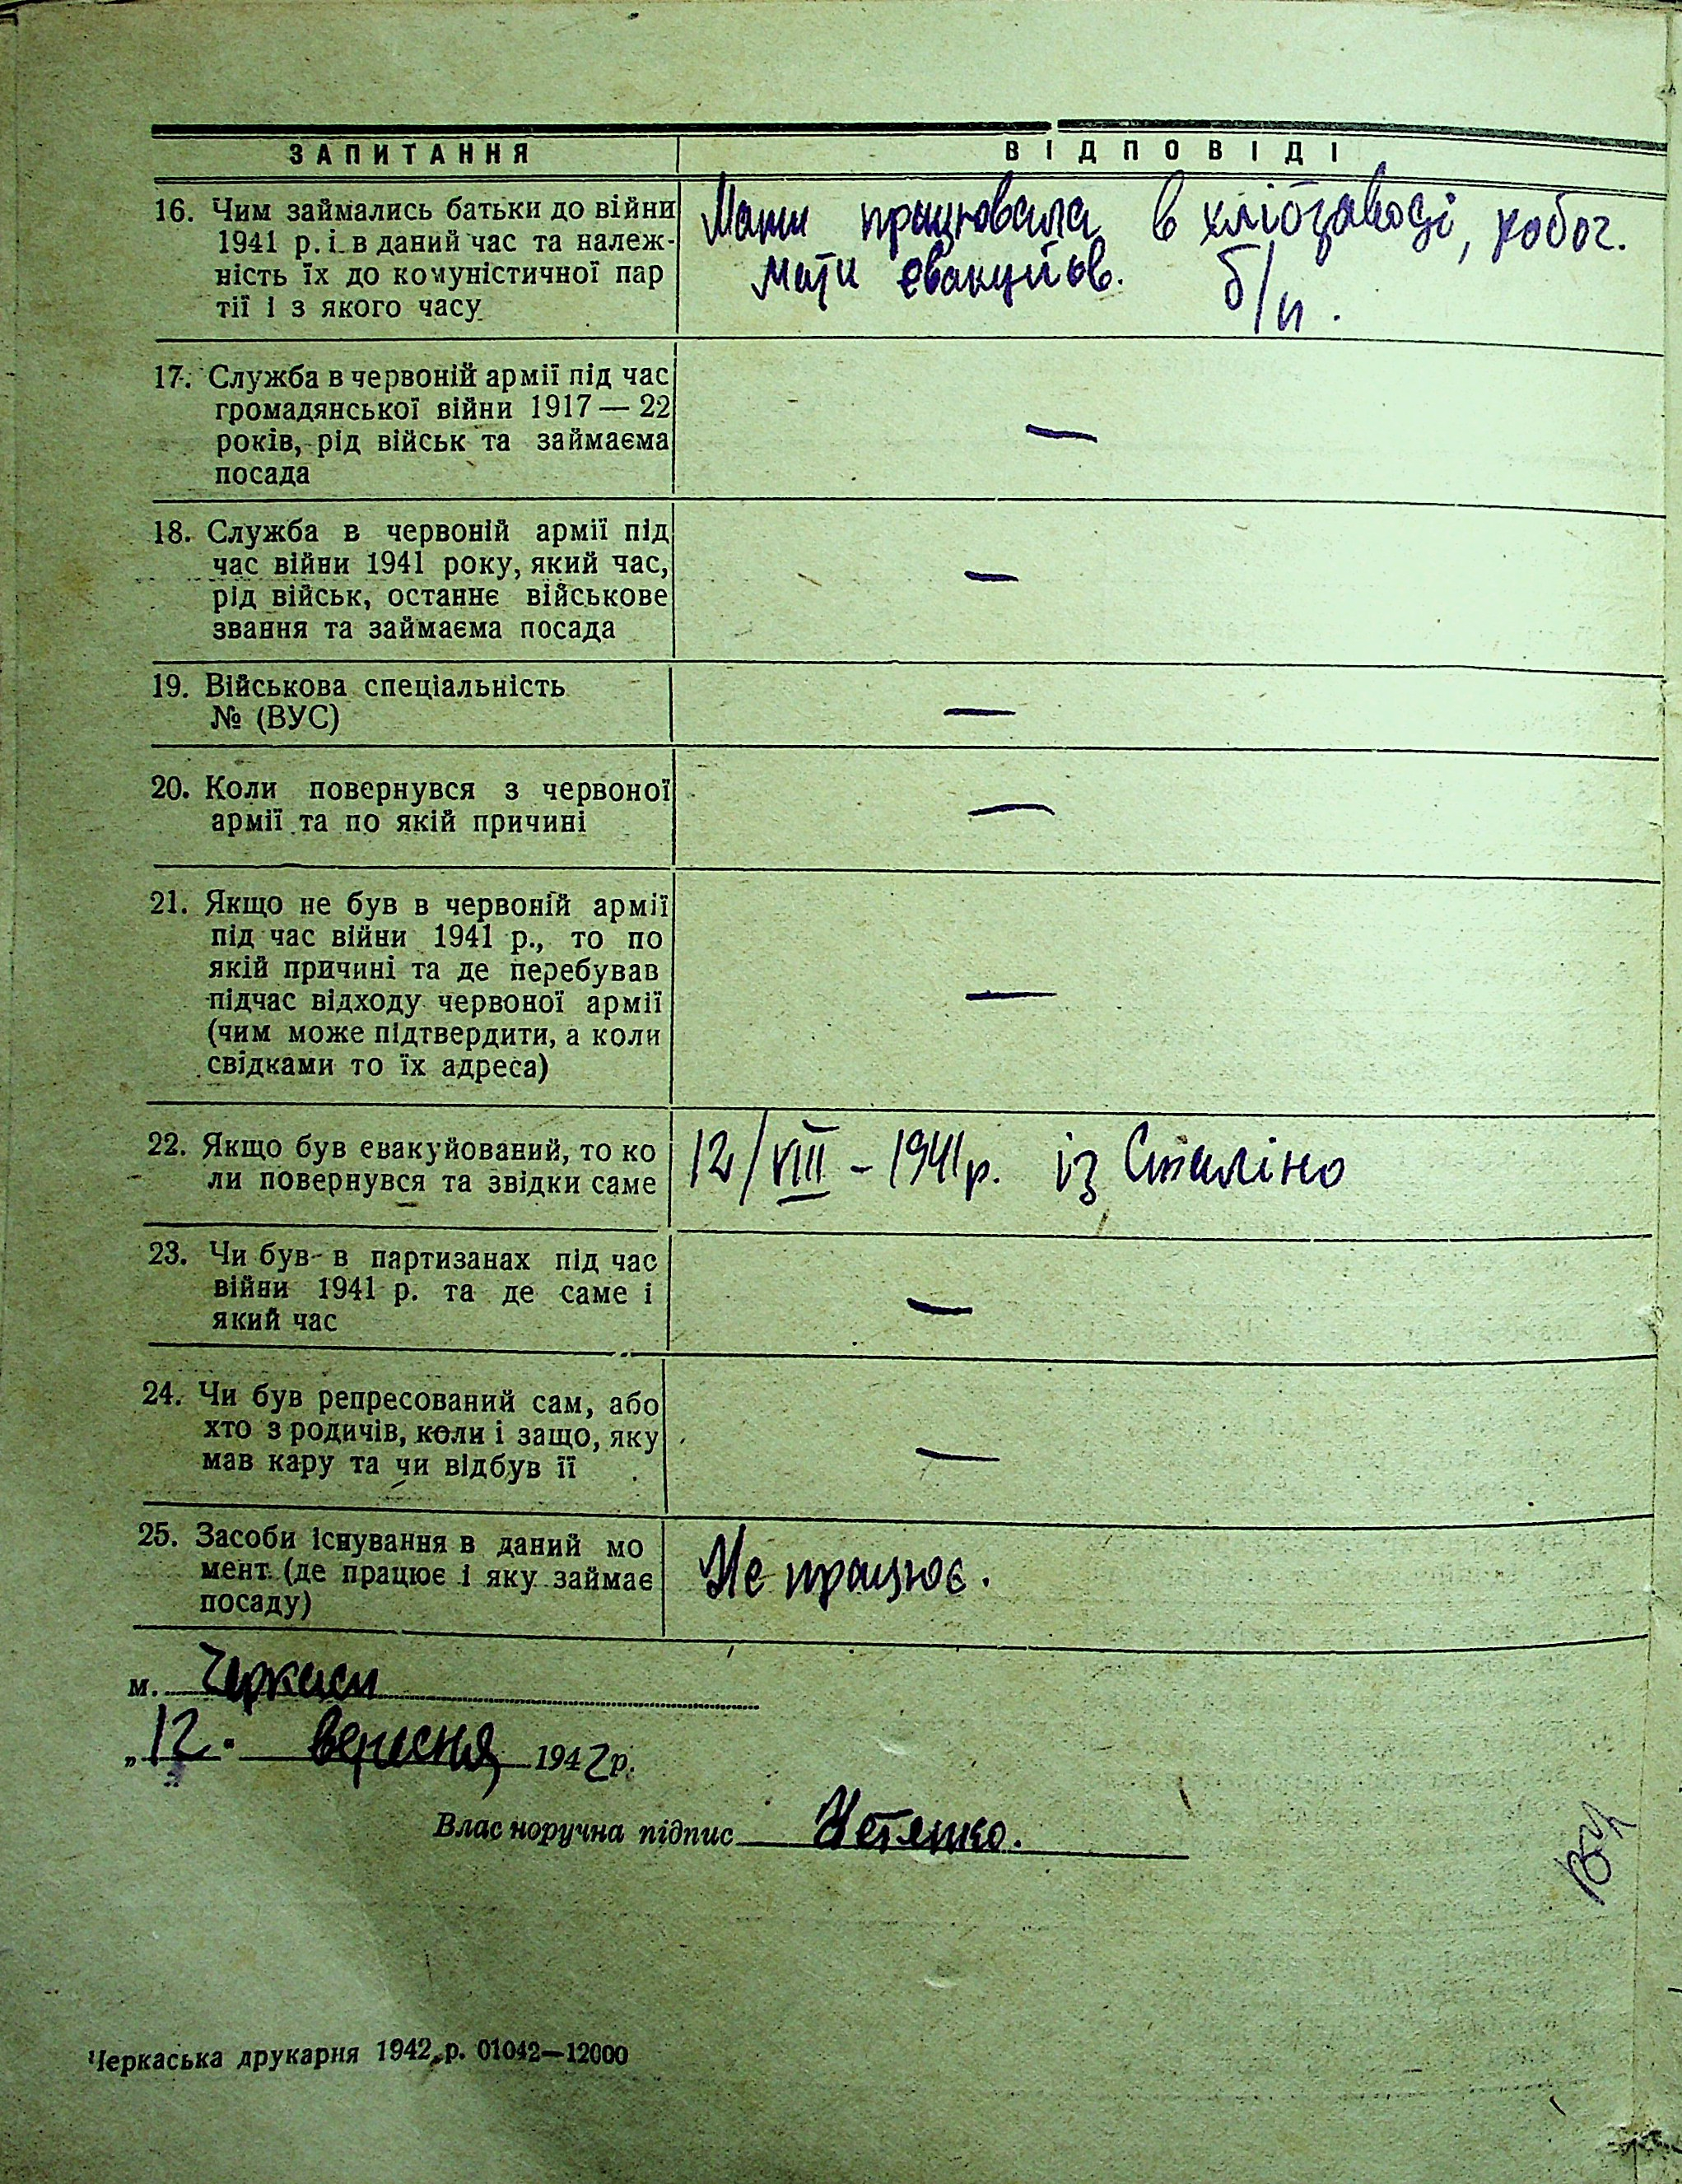 ЗАПИТАННЯ ВІДПОВІДІ
16. Чим займались батьки до війни
1941 р. і в даний час та належ-
ність їх до комуністичної пар
тії і з якого часу
Мати працювала в хлібзаводі, робоч.
мати евакуйов. б/п.
17. Служба в червоній армії під час
громадянської війни 1917 — 22
років, рід військ та займаєма
посада
—
18. Служба в червоній армії під
час війни 1941 року, який час,
рід військ, останнє військове
звання та займаєма посада
—
19. Військова спеціальність
№ (ВУС)
—
20. Коли повернувся з червоної
армії та по якій причині
—
21. Якщо не був в червоній армії
під час війни 1941 р., то по
якій причині та де перебував
підчас відходу червоної армії
(чим може підтвердити, а коли
свідками то їх адреса)
—
22. Якщо був евакуйований, то ко
ли повернувся та звідки саме
12/VIII - 1941р. із Сталіно
23. Чи був в партизанах під час
війни 1941 р. та де саме і
який час
—
24. Чи був репресований сам, або
хто з родичів, коли і защо, яку
мав кару та чи відбув її
—
25. Засоби існування в даний мо
мент (де працює і яку займає
посаду)
Не працює.
м. Черкаси
„12. вересня 1942 р.
Власноручна підпис
Черкаська друкарня 1942 р. 01042—12000